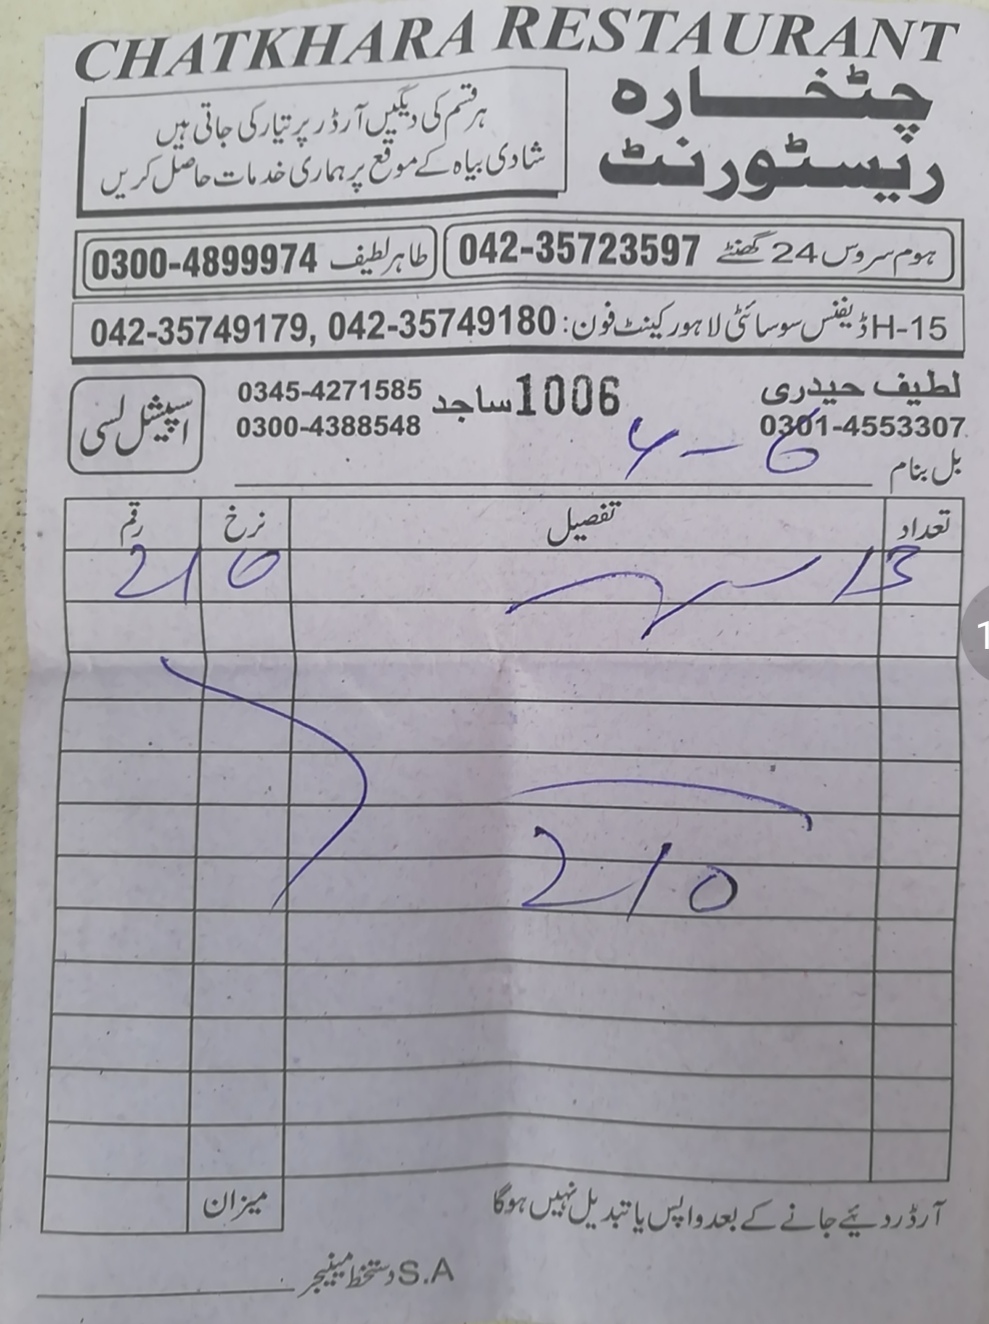 CHATKHARA RESTAURANT
چٹخارہ
ریسٹورنٹ
ہر قسم کی دیگیں آرڈر پر تیار کی جاتی ہیں
شادی بیاہ کے موقع پر ہماری خدمات حاصل کریں
ہوم سروس 24 گھنٹے 042-35723597
طاہر لطیف 0300-4899974
H-15 ڈیفنس سوسائٹی لاہور کینٹ فون: 042-35749179, 042-35749180
لطیف حیدری
0301-4553307
1006
ساجد
0345-4271585
0300-4388548
اسپیشل لسی
بل بنام
تعداد تفصیل نرخ رقم
13 210
210
میزان
آرڈر دیئے جانے کے بعد واپس یا تبدیل نہیں ہوگا
S.A دستخط مینیجر